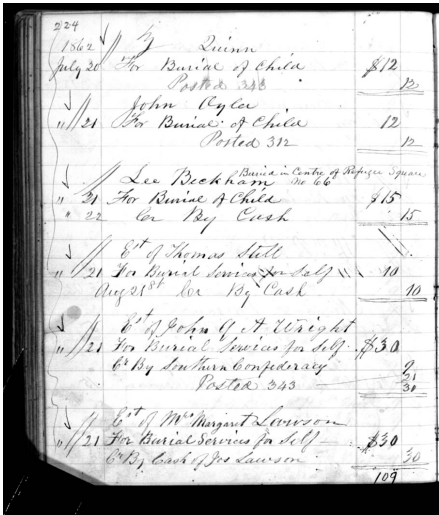 224
1862 // Quinn
July 20 For Burial of Child $12
Posted 343 12
// John Ryler
" // 21 For Burial of Child 12
Posted 312 12
// Lee Beckham Buried in Centre of Refugee Square No 66
" 21 For Burial of Child $15
" 22 Cr By Cash 15
// Est of Thomas Still
" // 21 For Burial Services for Self 10
Aug 21st Cr By Cash 10
// Est of John G A Wright
" // 21 For Burial Services for Self $30
Cr By Southern Confederacy 9
Posted 343 21
30
// Est of Mrs Margaret Lawson
" // 21 For Burial Services for Self $30
Cr By Cash of Jos Lawson 30
109